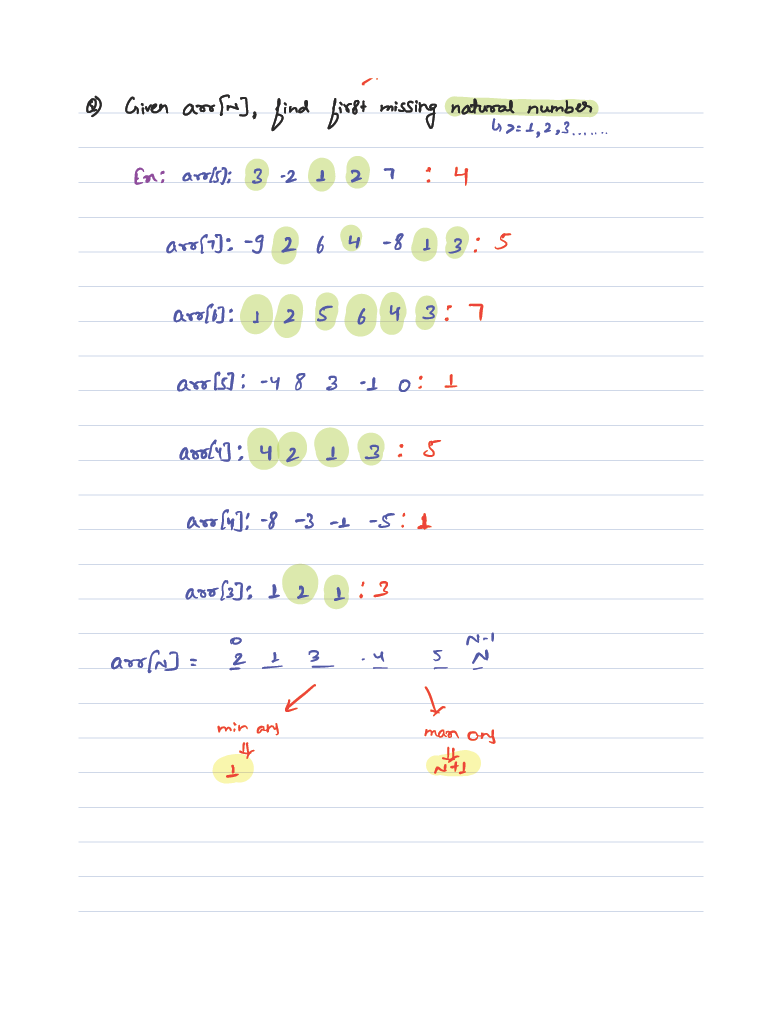 Q) Given arr[N], find first missing natural number
↳ >= 1, 2, 3 .......
Ex: arr[5]: 3 -2 1 2 7 : 4
arr[7]: -9 2 6 4 -8 1 3 : 5
arr[6]: 1 2 5 6 4 3 : 7
arr[5]: -4 8 3 -1 0 : 1
arr[4]: 4 2 1 3 : 5
arr[4]: -8 -3 -1 -5 : 1
arr[3]: 1 2 1 : 3
0 N-1
arr[N] = 2 1 3 . 4 5 N
min ans max ans
⇓ ⇓
1 N+1